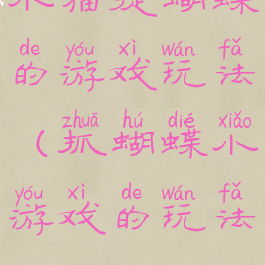 小猫捉蝴蝶
de yóu xì wán fǎ
的游戏玩法
zhuā hú dié xiǎo
(抓蝴蝶小
yóu xì de wán fǎ
游戏的玩法